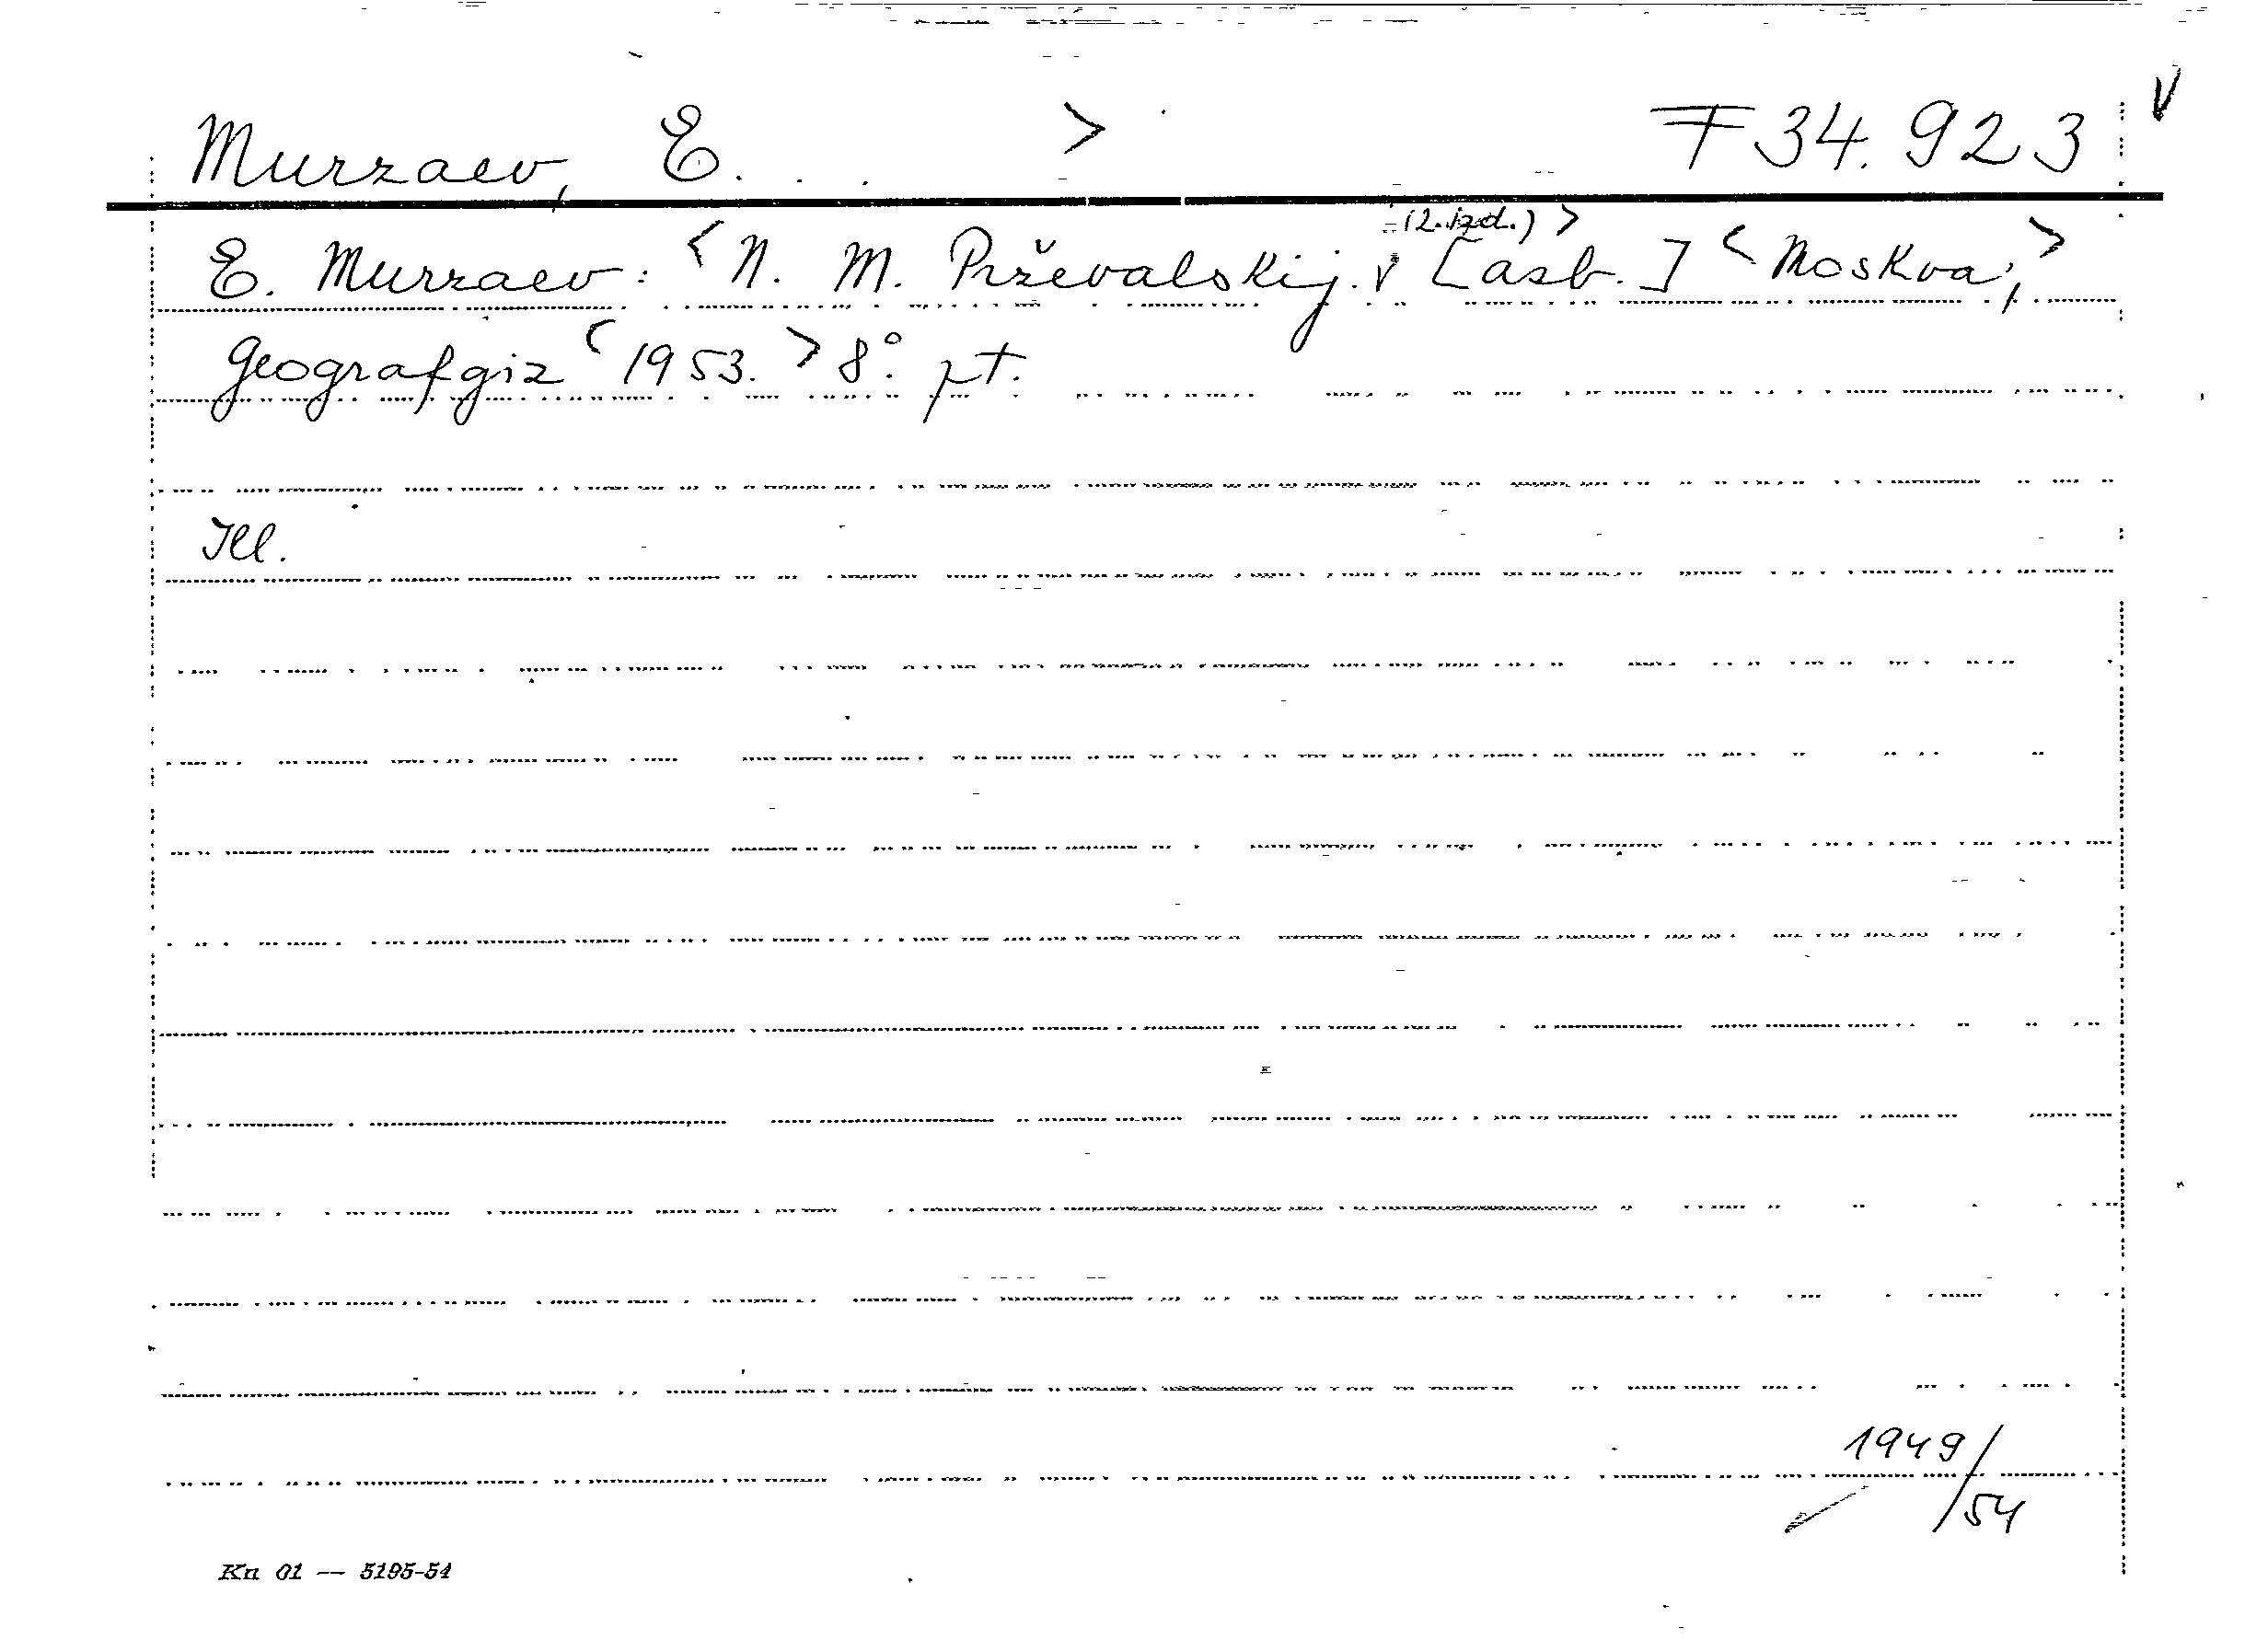 Murzaev, E. > F 34.923 V
(2. izd.) >
E. Murzaev: <N. M. Prževalskij. v [asb.] <Moskva,>
Geografgiz <1953.> 8°. pt.
Ill.
1949/
/54
Kn 01 — 5195-54